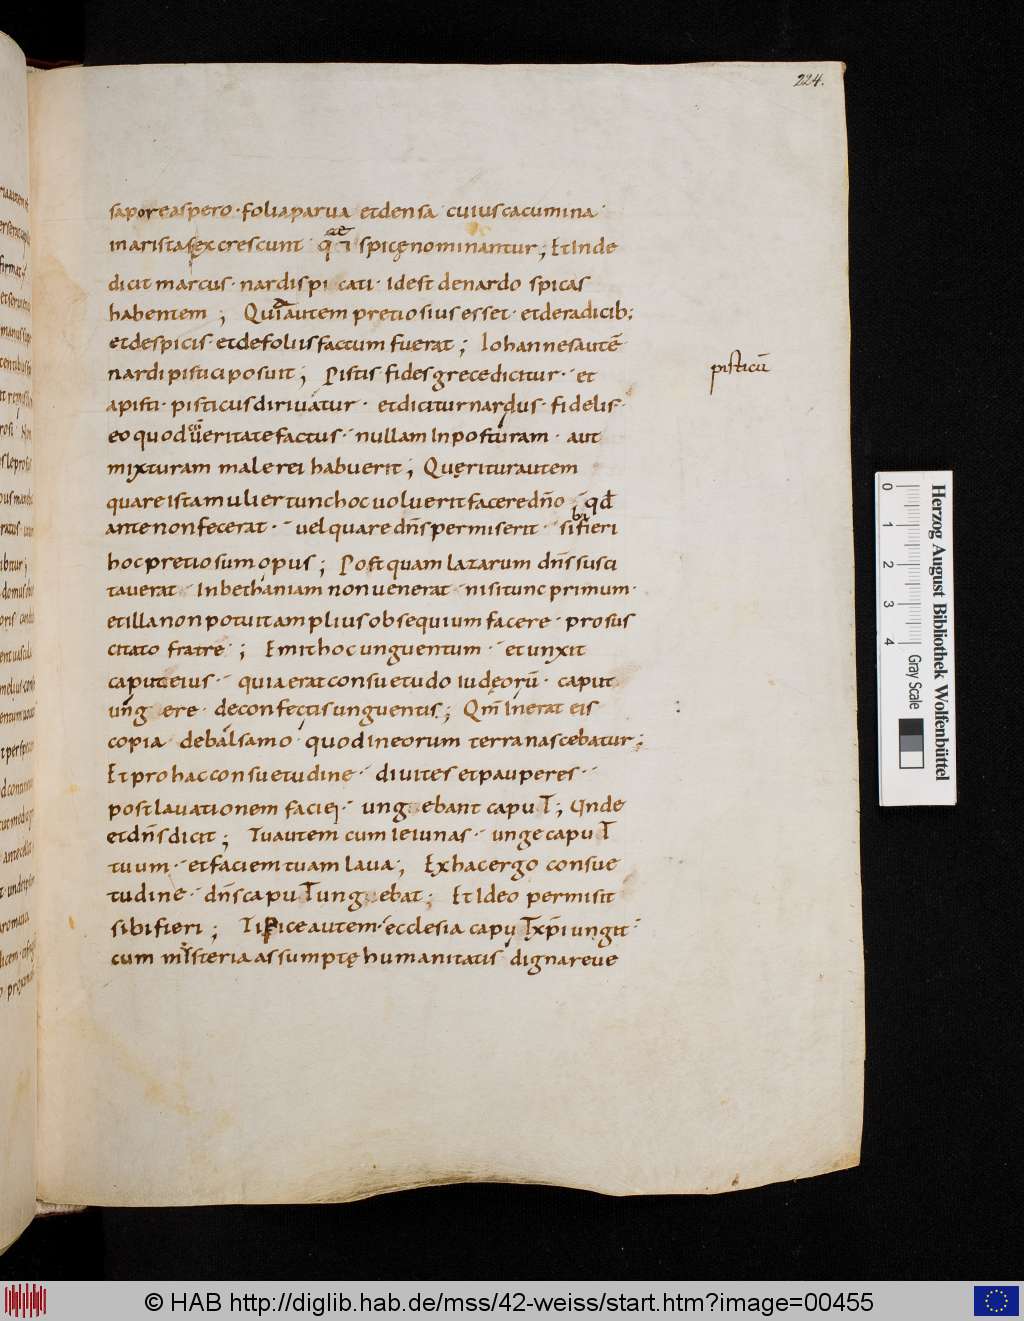 224.
saporeaspero · foliaparua etdensa cuiuscacumina
inaristasexcrescunt · q̄ i spicęnominantur ; Etinde
dicit marcus · nardispi cati · idest denardo spicas
habentem ; Quiaautem pretiosius esset · etderadicib;
etdespicis · etdefoliisfactum fuerat ; Iohannesautē
nardi pisticiposuit ; Pistis fidesgrecedicitur · et
pisticū
apisti · pisticusdiriuatur · etdiciturnardus · fidelis ·
eo quod ueritatefactus · nullam inposturam · aut
mixturam malerei habuerit ; Quęriturautem
quareistamuliertunchocuoluеritfaceredn̄o ; qd̄
antenonfecerat · uel quare dn̄spermiserit · sibifieri
hocpretiosumopus ; Postquam lazarum dn̄s susci
tauerat · Inbethaniam nonuenerat · nisitunc primum ·
etillanon potuitampliusobsequium facere · prosus
citato fratre ; Emithocunguentum · etunxit
caputeius · quiaeratconsuetudo iudęorū · caput
ung ere · deconfectisunguentis ; Qm̄ inerat eis
copia debalsamo quodineorum terranascebatur ;
Etprohacconsuetudine · diuites etpauperes ·
postlauationem faciei · ung ebant caput ; Unde
etdn̄sdicit ; Tuautem cum ieiunas · unge caput
tuum · etfaciemtuam laua ; Exhacergo consue
tudine · dn̄scaputung ebat ; Etideo permisit
sibifieri ; Tipiceautem · ecclesia caputxp̄i ungit ·
cum misteria assumptę humanitatis dignareue
0 1 2 3 4
Gray Scale
Herzog August Bibliothek Wolfenbüttel
© HAB http://diglib.hab.de/mss/42-weiss/start.htm?image=00455